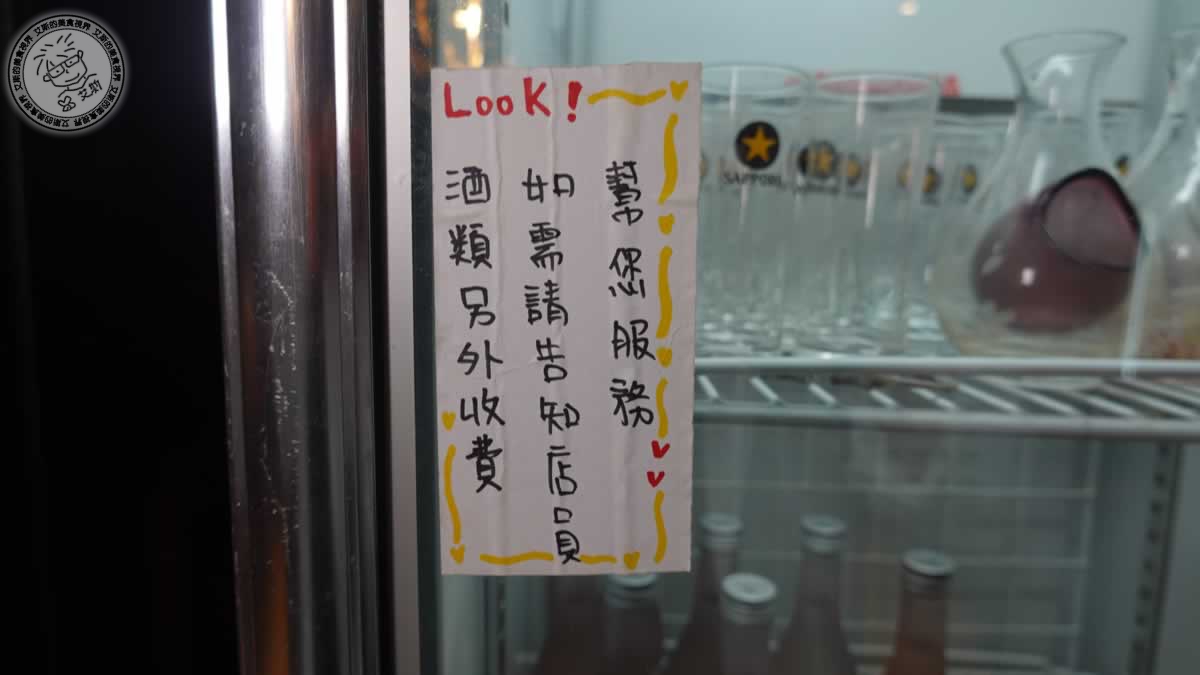 Look!
酒類另外收費
如需請告知店員
幫您服務
SAPPORO
艾斯的美食視界 艾斯的美食視界 艾斯的美食視界